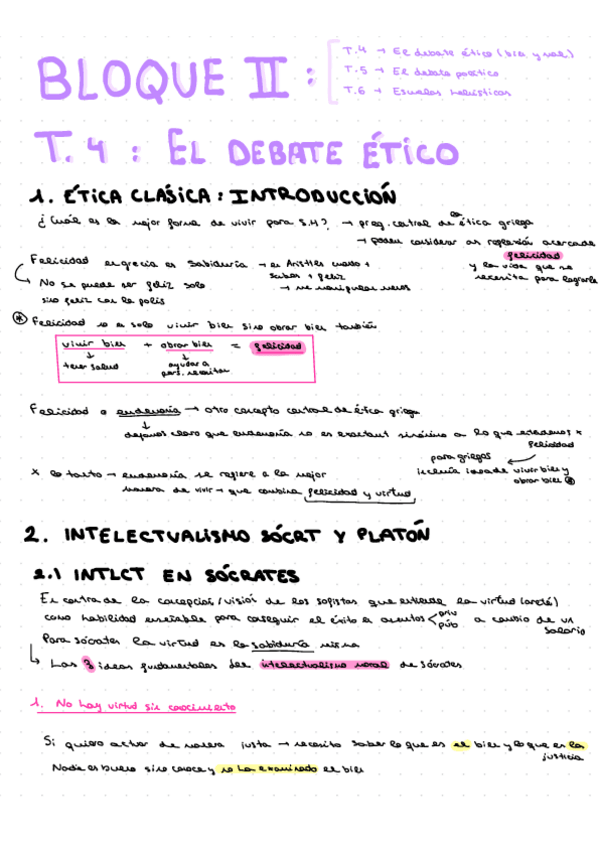 BLOQUE II :
T.4 → El debate ético (bra y val)
T.5 → El debate político
T.6 → Escuelas helísticas
T.4 : EL DEBATE ÉTICO
1. ÉTICA CLÁSICA : INTRODUCCIÓN
¿Cuál es la mejor forma de vivir para s.H? → preg. central de la ética griega
→ poden considerar as reflexión acercade felicidad
y la vida que se necesita para lograrla
Felicidad en grecia es sabiduría → es Aristtles cuando + sabes + feliz
→ no manipular
No se puede ser feliz solo
sino feliz con la polis
* Felicidad no es solo vivir bien sino obrar bien también
vivir bien + obrar bien = felicidad
↓ tener salud
↓ ayudar a pers. necesitan
Felicidad o eudemonía → otro concepto central de ética griega
↓
dejamos claro que eudemonía no es exactamt sinónimo a lo que entedemos x felicidad
para griegos
incluía idea de vivir bien y obrar bien *
x lo tanto → eudemonía se refiere a la mejor
manera de vivir → que combina felicidad y virtud
2. INTELECTUALISMO SÓCRT Y PLATÓN
2.1 INTLCT EN SÓCRATES
En contra de la concepción/visión de los sofistas que entiende la virtud (areté)
como habilidad enseñable para conseguir el éxito en asuntos < priv púb a cambio de un salario
Para sócrates la virtud es la sabiduría misma
Las 3 ideas fundamentales del intelectualismo moral de Sócrates
1. No hay virtud sin conocimiento
Si quiero actuar de manera justa → necesito saber lo que es el bien y lo que es la justicia
Nadie es bueno si no conoce y no ha examinado el bien